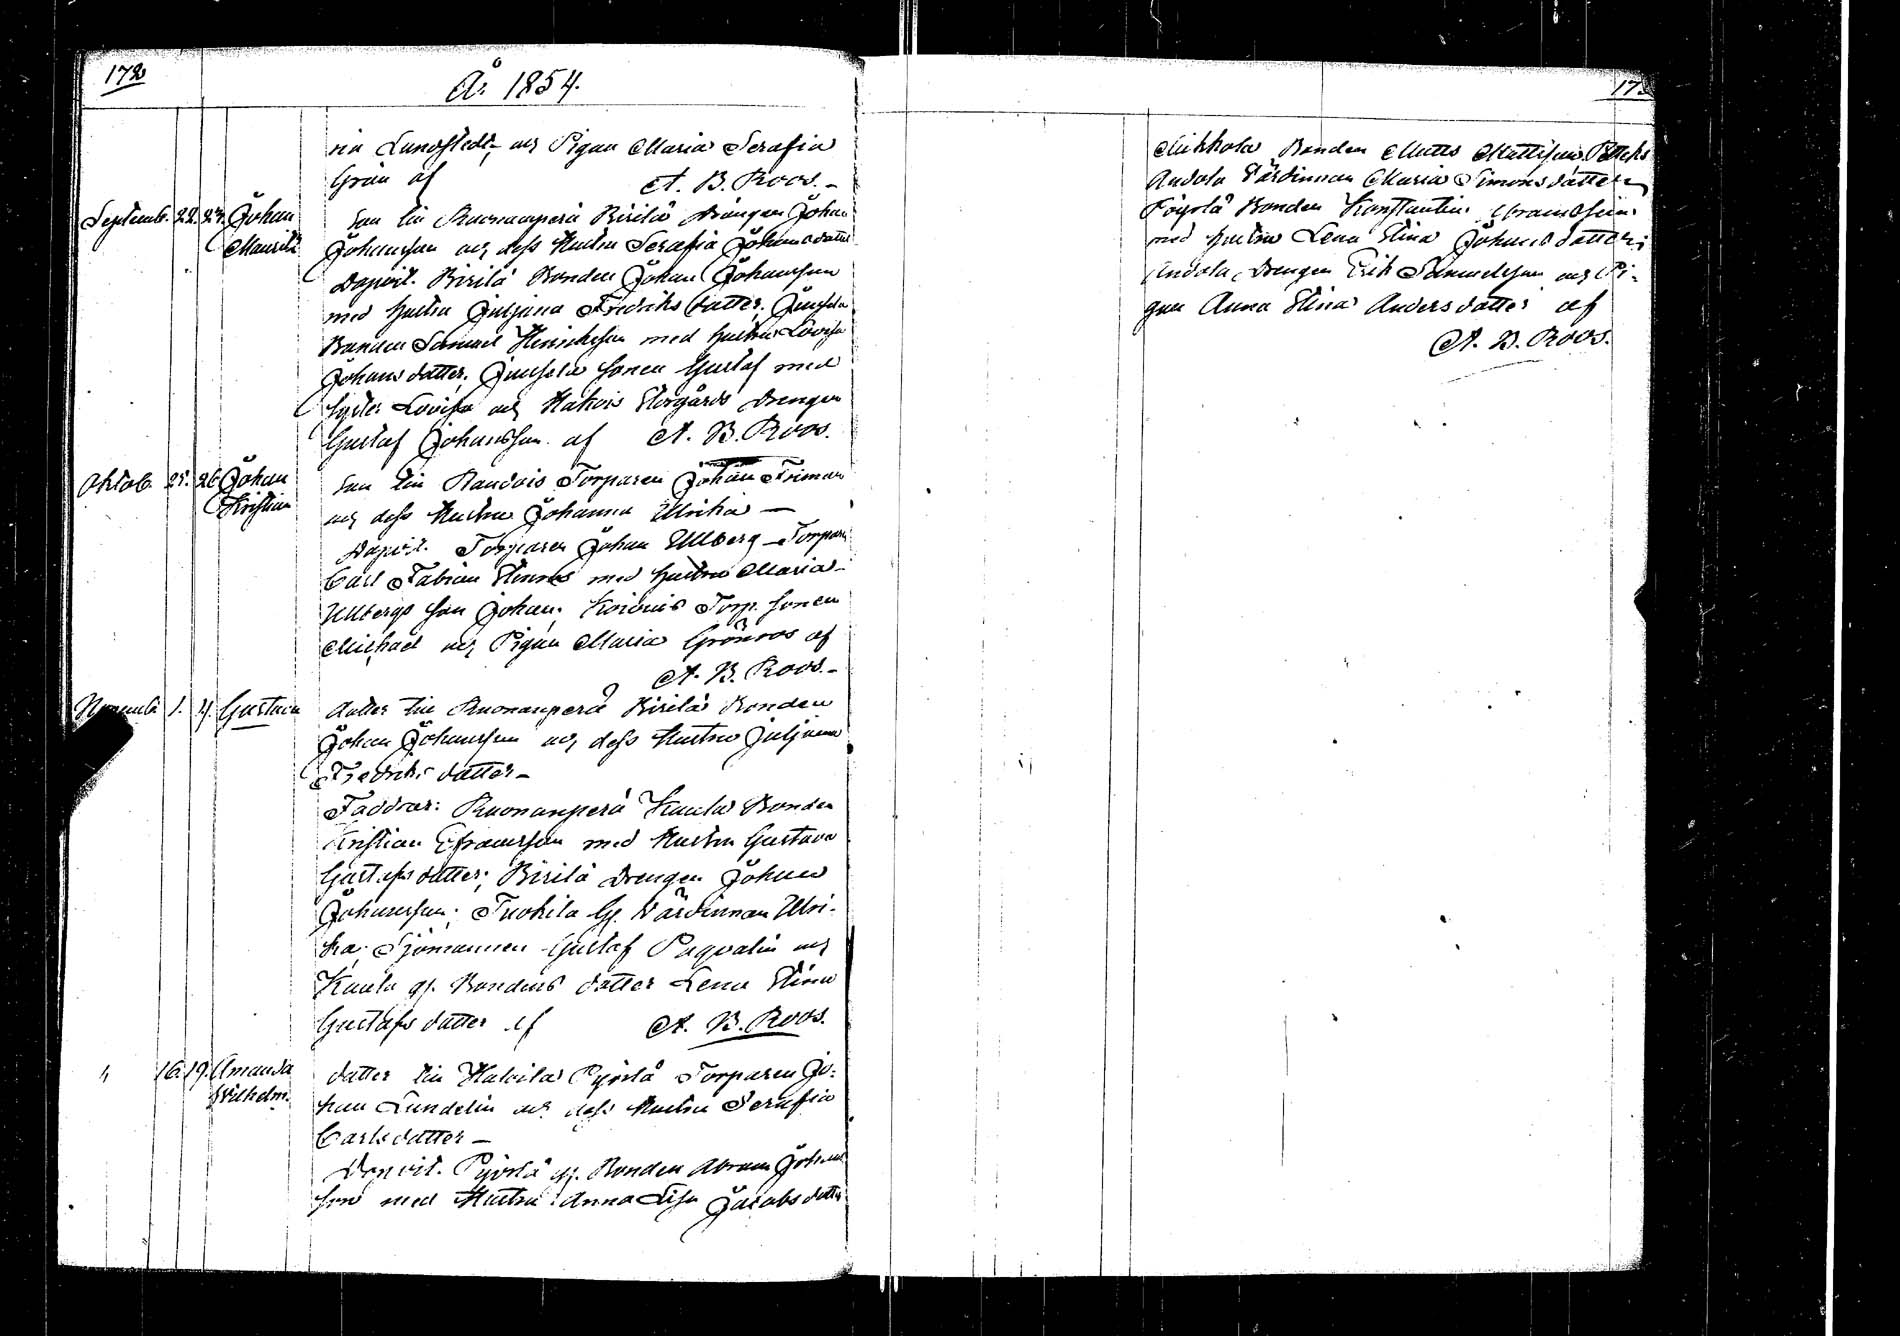 172
År 1854.
ria Lundstedt, och Pigan Maria Serafia
Grön af A. B. Roos.-
Septemb. 22. 23. Johan son till Ruonanperä Birilä Drängen Johan
Mauritz Johansson och dess Hustru Serafia Johansdatter
Dopvit. Birilä Bonden Johan Johansson
med hustru Juljana Fredriksdatter;
Bonden Samuel Henriksson med hustru Lovisa
Johansdatter; sonen Gustaf med
syster Lovisa och Storgårds Drengen
Gustaf Johansson af A. B. Roos.
Oktob. 25. 26 Johan son till Raudois Torparen Johan Friman
Kristian och dess Hustru Johanna Ulrika —
Dopvit. Torparen Johan Ullberg - Torparen
Carl Fabian Stenroos med hustru Maria -
Ullbergs son Johan; Torp. sonen
Michael och Pigan Maria Grönroos af
A. B. Roos.-
1. 4. Gustava datter till Ruonanperä Birilä Bonden
Johan Johansson och dess Hustru Juljana
Fredriks datter -
Faddrar: Ruonanperä Kaula Bonden
Kristian Efraimsson med Hustru Gustava
Gustafsdatter; Birilä Drengen Johan
Johansson; Tuohila Gl. Värdinnan Ulri-
ka; Sjömannen Gustaf Paqvalin och
Kaula gl. Bondens datter Lena Stina
Gustafs datter af A. B. Roos.
" 16. 19. Amanda datter till Pyörlä Torparen Jo-
Wilhelm. han Lundelin och dess Hustru Serafia
Carlsdatter -
Dopvit. Pyörlä gl. Bonden Abram Johans
son med Hustru Anna Lisa Jacobs datter
173
Mikkola Bonden Matts Mattsson,
Andola Värdinnan Maria Simonsdatter
Bonden Konstantin Abramsson
med hustru Lena Stina Johans datter;
Andola Drengen Erik Samuelsson och Pi-
gan Anna Stina Anders datter af
A. B. Roos.